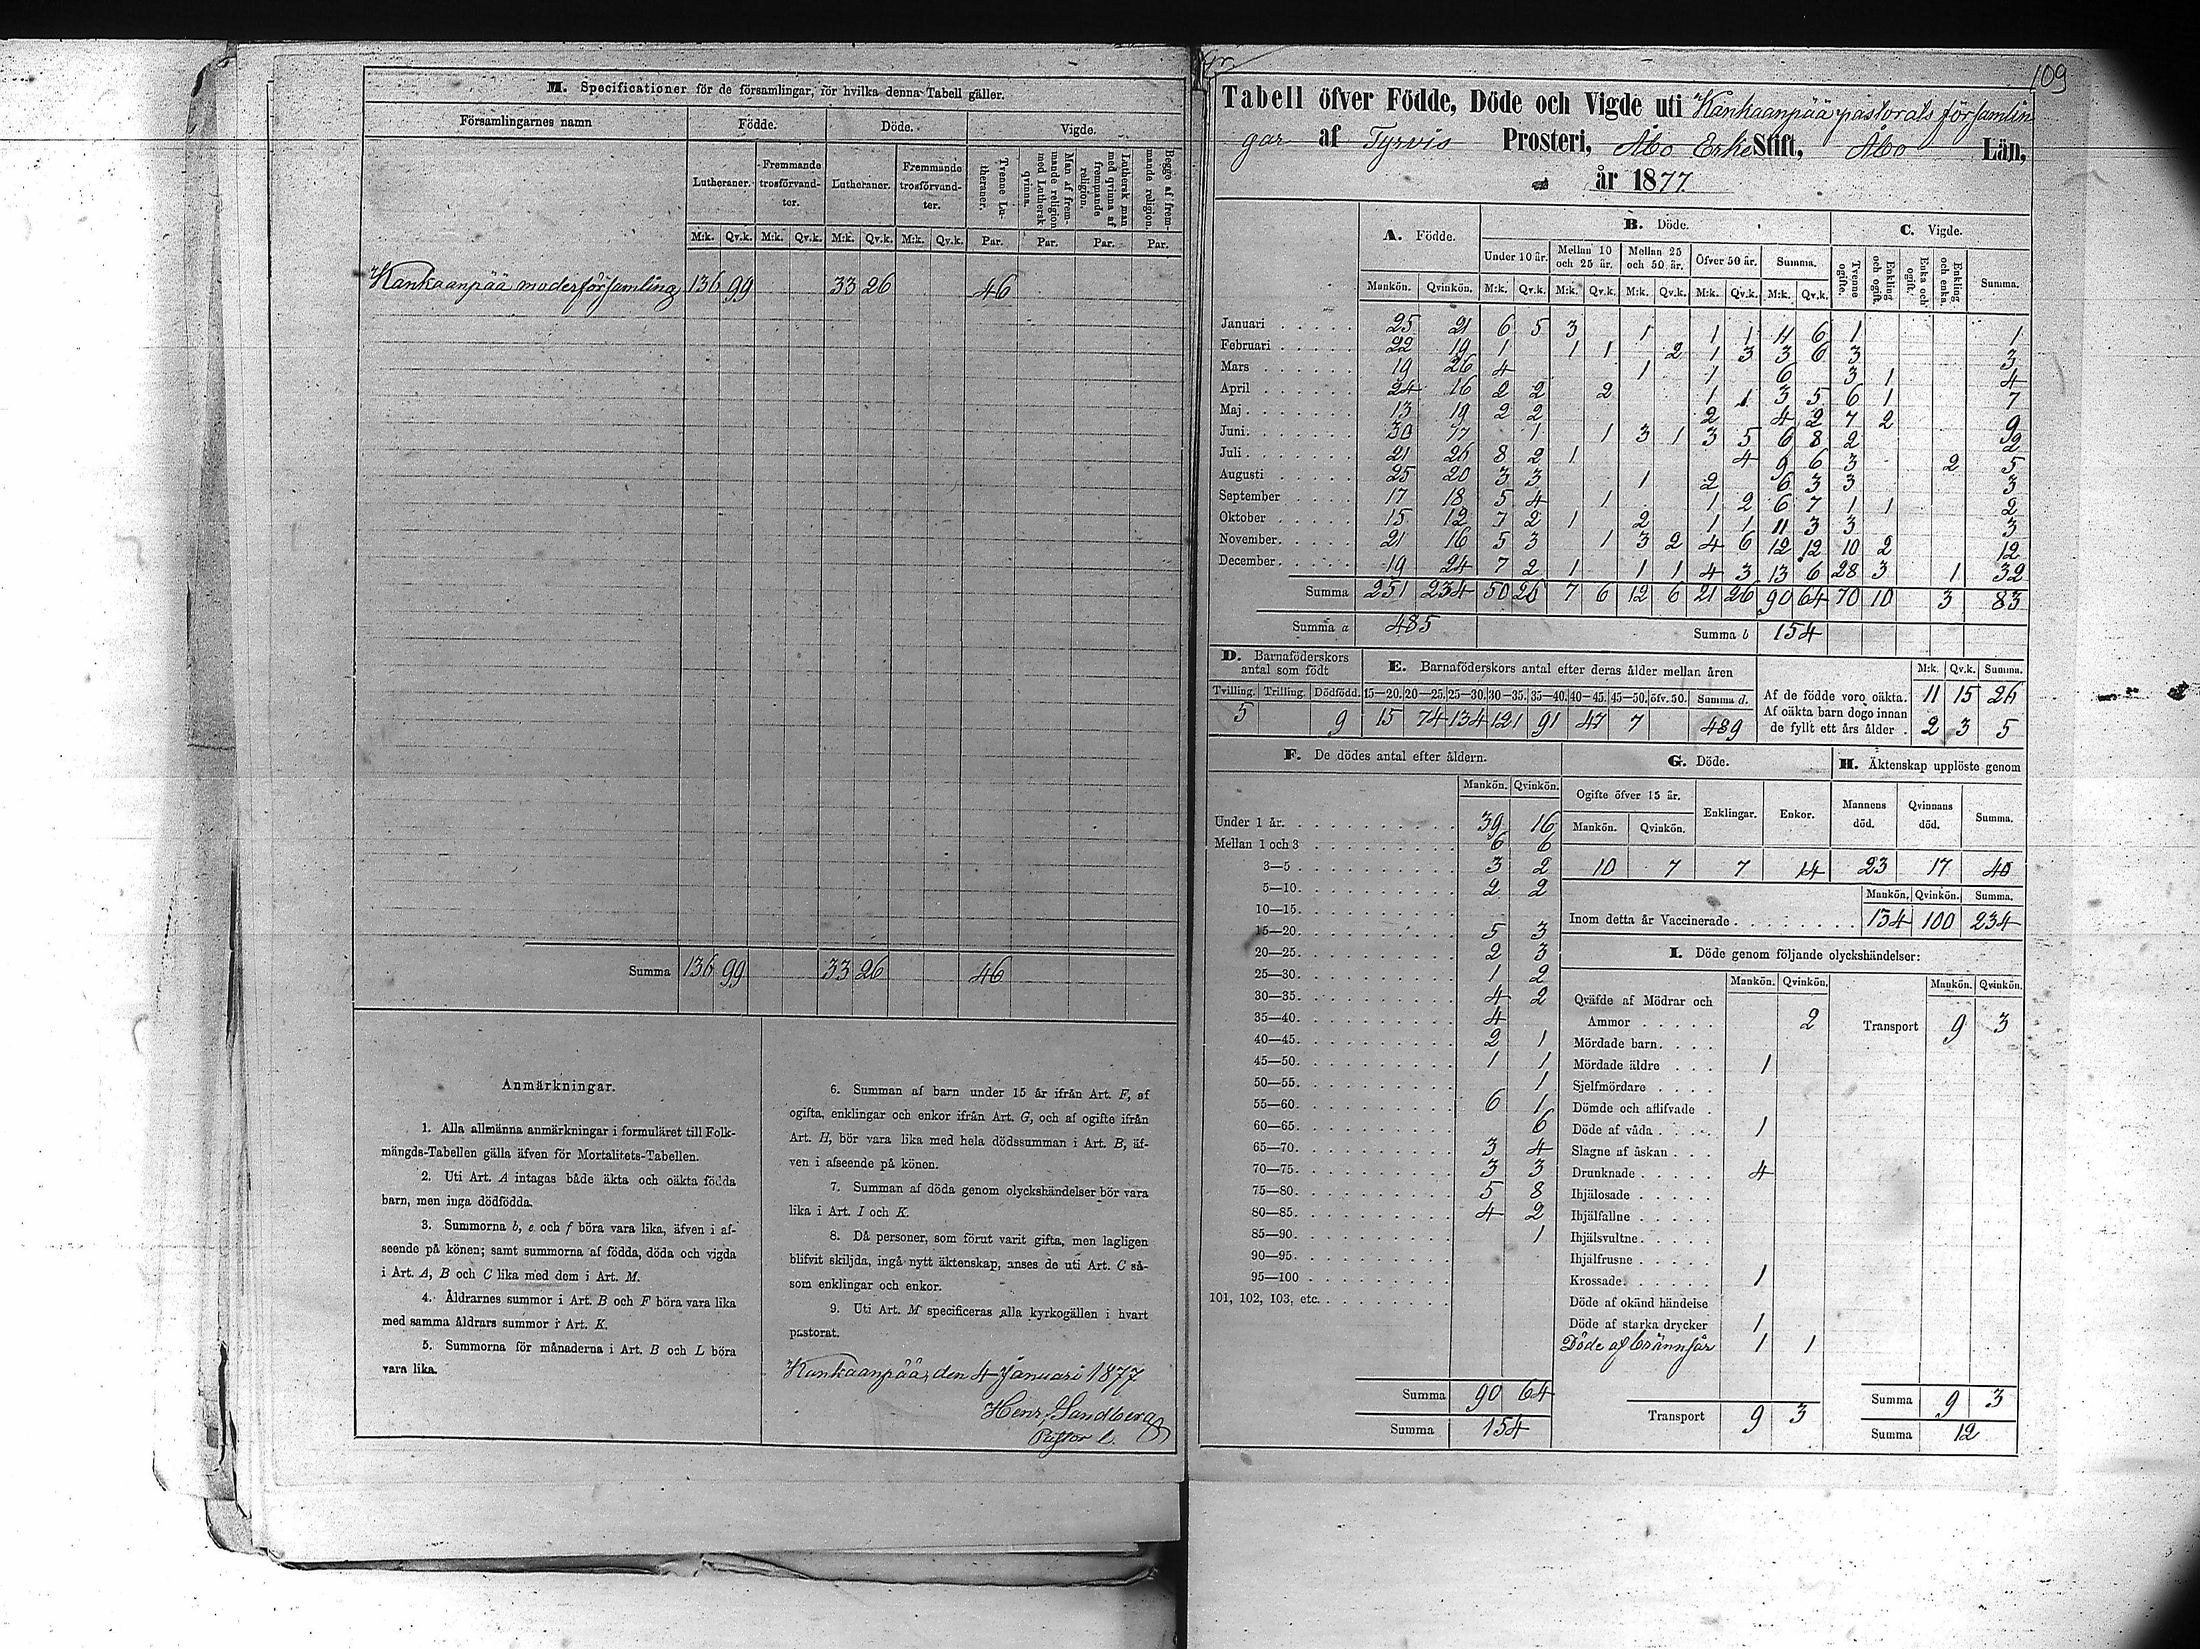 M. Specificationer för de församlingar, för hvilka denna Tabell gäller.
Församlingarnes namn Födde. Döde. Vigde.
Lutheraner. Fremmande trosförvandter. Lutheraner. Fremmande trosförvandter. Tvenne Lutheraner. Man af fremmande religion med Luthersk qvinna. Luthersk man med qvinna af fremmande religion. Begge af fremmande religion.
M:k. Qv.k. M:k. Qv.k. M:k. Qv.k. M:k. Qv.k. Par. Par. Par. Par.
Kankaanpää moderförsamling 136 99 33 26 46
Summa 136 99 33 26 46
Anmärkningar.
1. Alla allmänna anmärkningar i formuläret till Folk-
mängds-Tabellen gälla äfven för Mortalitets-Tabellen.
2. Uti Art. A intagas både äkta och oäkta födda
barn, men inga dödfödda.
3. Summorna b, e och f böra vara lika, äfven i af-
seende på könen; samt summorna af födda, döda och vigda
i Art. A, B och C lika med dem i Art. M.
4. Åldrarnes summor i Art. B och F böra vara lika
med samma åldrars summor i Art. K.
5. Summorna för månaderna i Art. B och L böra
vara lika.
6. Summan af barn under 15 år ifrån Art. F, af
ogifta, enklingar och enkor ifrån Art. G, och af ogifte ifrån
Art. H, bör vara lika med hela dödssumman i Art. B, äf-
ven i afseende på könen.
7. Summan af döda genom olyckshändelser bör vara
lika i Art. I och K.
8. Då personer, som förut varit gifta, men lagligen
blifvit skiljda, ingå nytt äktenskap, anses de uti Art. C så-
som enklingar och enkor.
9. Uti Art. M specificeras alla kyrkogällen i hvart
pastorat.
Kankaanpää, den 4 Januari 1877
Henr. Sandberg
Pastor l.
109
Tabell öfver Födde, Döde och Vigde uti Kankaanpää pastorats församlin
gar af Tyrvis Prosteri, Åbo Erke Stift, Åbo Län,
år 1877.
A. Födde. B. Döde. C. Vigde.
Under 10 år. Mellan 10 och 25 år. Mellan 25 och 50 år. Öfver 50 år. Summa. Tvenne ogifte. Enkling och ogift. Enka och ogift. Enkling och enka. Summa.
Mankön. Qvinkön. M:k. Qv.k. M:k. Qv.k. M:k. Qv.k. M:k. Qv.k. M:k. Qv.k.
Januari 25 21 6 5 3 1 1 1 11 6 1 1
Februari 22 19 1 1 1 2 1 3 3 6 3 3
Mars 19 26 4 1 1 6 3 1 4
April 24 16 2 2 2 1 1 3 5 6 1 7
Maj 13 19 2 2 2 4 2 7 2 9
Juni 30 17 1 1 3 1 3 5 6 8 2 2
Juli 21 26 8 2 1 4 9 6 3 2 5
Augusti 25 20 3 3 1 2 6 3 3 3
September 17 18 5 4 1 1 2 6 7 1 1 2
Oktober 15 12 7 2 1 2 1 1 11 3 3 3
November 21 16 5 3 1 3 2 4 6 12 12 10 2 12
December 19 24 7 2 1 1 1 4 3 13 6 28 3 1 32
Summa 251 234 50 26 7 6 12 6 21 26 90 64 70 10 3 83
Summa a 485 Summa b 154
D. Barnaföderskors antal som födt E. Barnaföderskors antal efter deras ålder mellan åren
M:k. Qv.k. Summa.
Tvilling. Trilling. Dödfödd. 15—20. 20—25. 25—30. 30—35. 35—40. 40—45. 45—50. öfv. 50. Summa d.
5 9 15 74 134 121 91 47 7 489
Af de födde voro oäkta. 11 15 26
Af oäkta barn dogo innan
de fyllt ett års ålder . 2 3 5
F. De dödes antal efter åldern.
Mankön. Qvinkön.
Under 1 år. 39 16
Mellan 1 och 3 6 6
3—5 3 2
5—10. 2 2
10—15.
15—20. 5 3
20—25. 2 3
25—30. 1 2
30—35. 4 2
35—40. 4
40—45. 2 1
45—50. 1 1
50—55. 1
55—60. 6 1
60—65. 6
65—70. 3 4
70—75. 3 3
75—80. 5 8
80—85. 4 2
85—90. 1
90—95.
95—100
101, 102, 103, etc.
Summa 90 64
Summa 154
G. Döde. H. Äktenskap upplöste genom
Ogifte öfver 15 år. Enklingar. Enkor. Mannens död. Qvinnans död. Summa.
Mankön. Qvinkön.
10 7 7 14 23 17 40
Mankön. Qvinkön. Summa.
Inom detta år Vaccinerade 134 100 234
I. Döde genom följande olyckshändelser:
Mankön. Qvinkön. Mankön. Qvinkön.
Qväfde af Mödrar och
Ammor 2 Transport 9 3
Mördade barn.
Mördade äldre 1
Sjelfmördare
Dömde och aflifvade
Döde af våda 1
Slagne af åskan
Drunknade 4
Ihjälosade
Ihjälfallne
Ihjälsvultne.
Ihjälfrusne
Krossade. 1
Döde af okänd händelse
Döde af starka drycker 1
Döde af brännsår 1 1
Transport 9 3
Summa 9 3
Summa 12